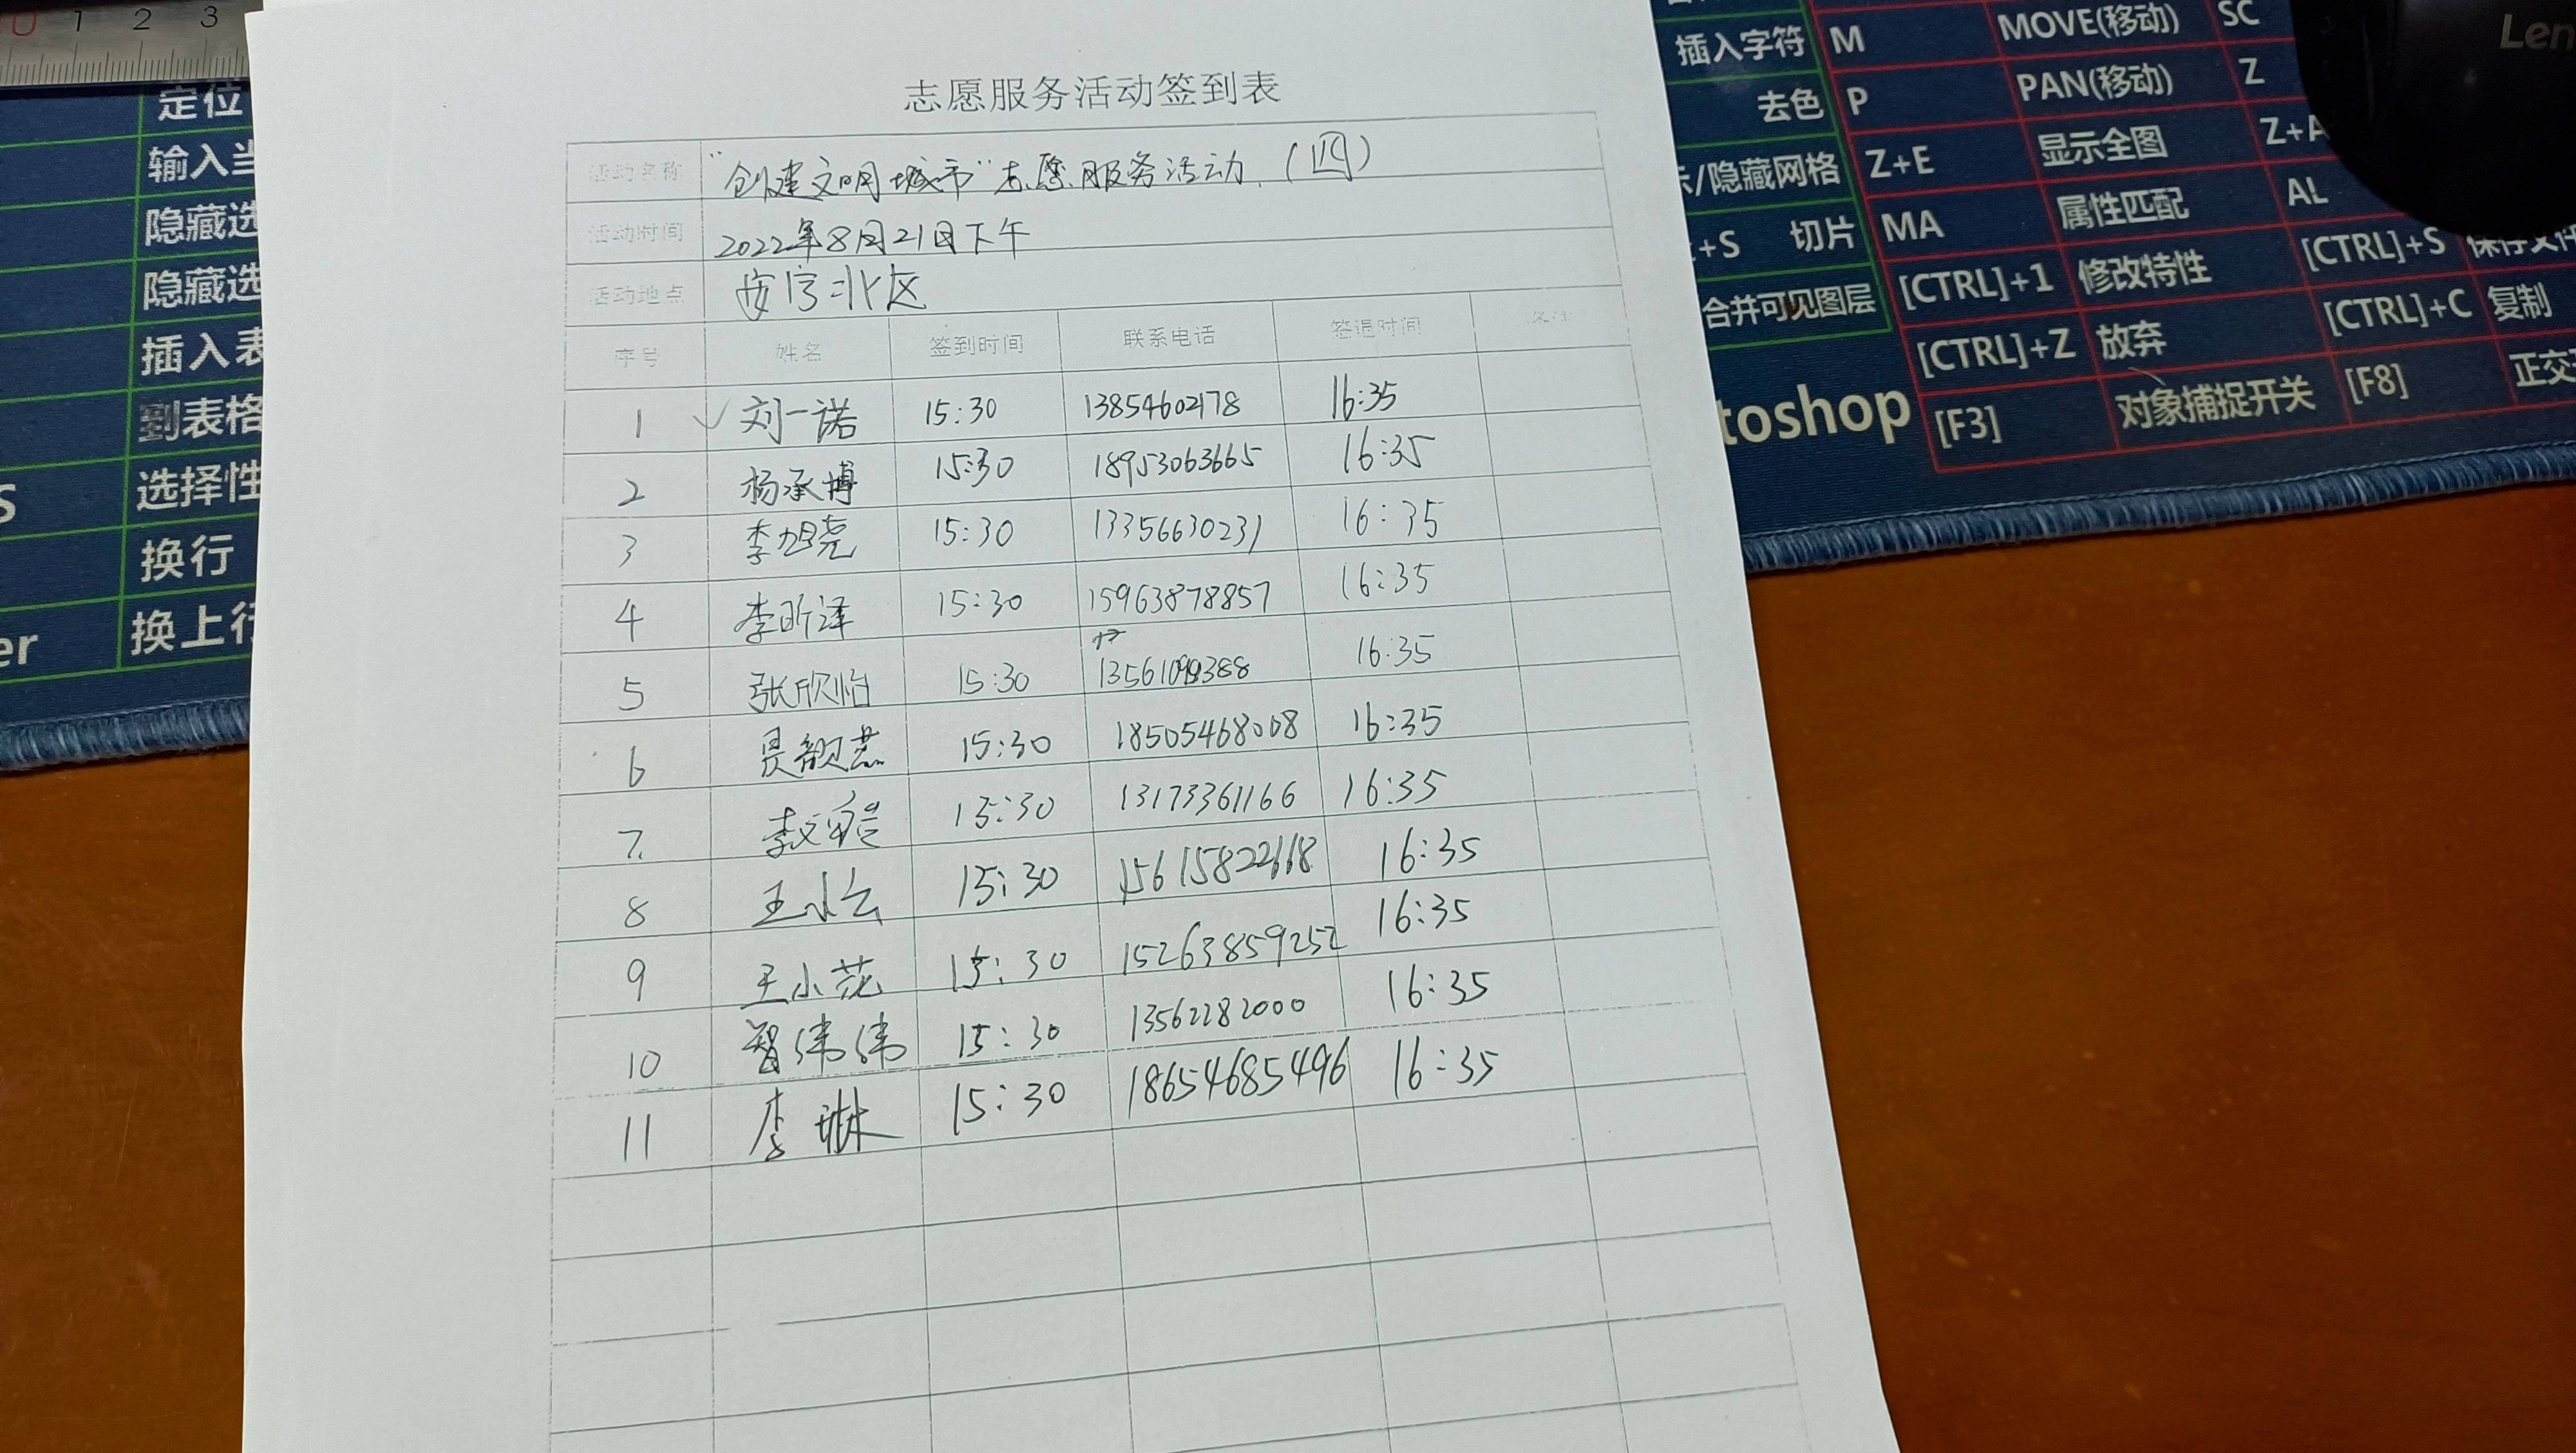 0 1 2 3
定位
输入当
隐藏选
隐藏选
插入表
到表格
S 选择性
换行
er 换上行
志愿服务活动签到表
活动名称 “创建文明城市”志愿服务活动.(四)
活动时间 2022年8月21日下午
活动地点 安宁北区
序号 姓名 签到时间 联系电话 签退时间 备注
1 ✓ 刘一诺 15:30 13854602178 16:35
2 杨承博 15:30 18953063665 16:35
3 李旭尧 15:30 13356630231 16:35
4 李昕泽 15:30 15963878857 16:35
5 张欣怡 15:30 16:35
6 15:30 18505468008 16:35
7. 15:30 13173361166 16:35
8 王小云 15:30 16:35
9 王小花 15:30 15263859252 16:35
10 智伟伟 15:30 13562282000 16:35
11 李琳 15:30 18654685496 16:35
插入字符 M MOVE(移动) SC
去色 P PAN(移动) Z
/隐藏网格 Z+E 显示全图 Z+A
+S 切片 MA 属性匹配 AL
合并可见图层 [CTRL]+1 修改特性 [CTRL]+S 保存文件
[CTRL]+Z 放弃 [CTRL]+C 复制
toshop [F3] 对象捕捉开关 [F8] 正交
Len